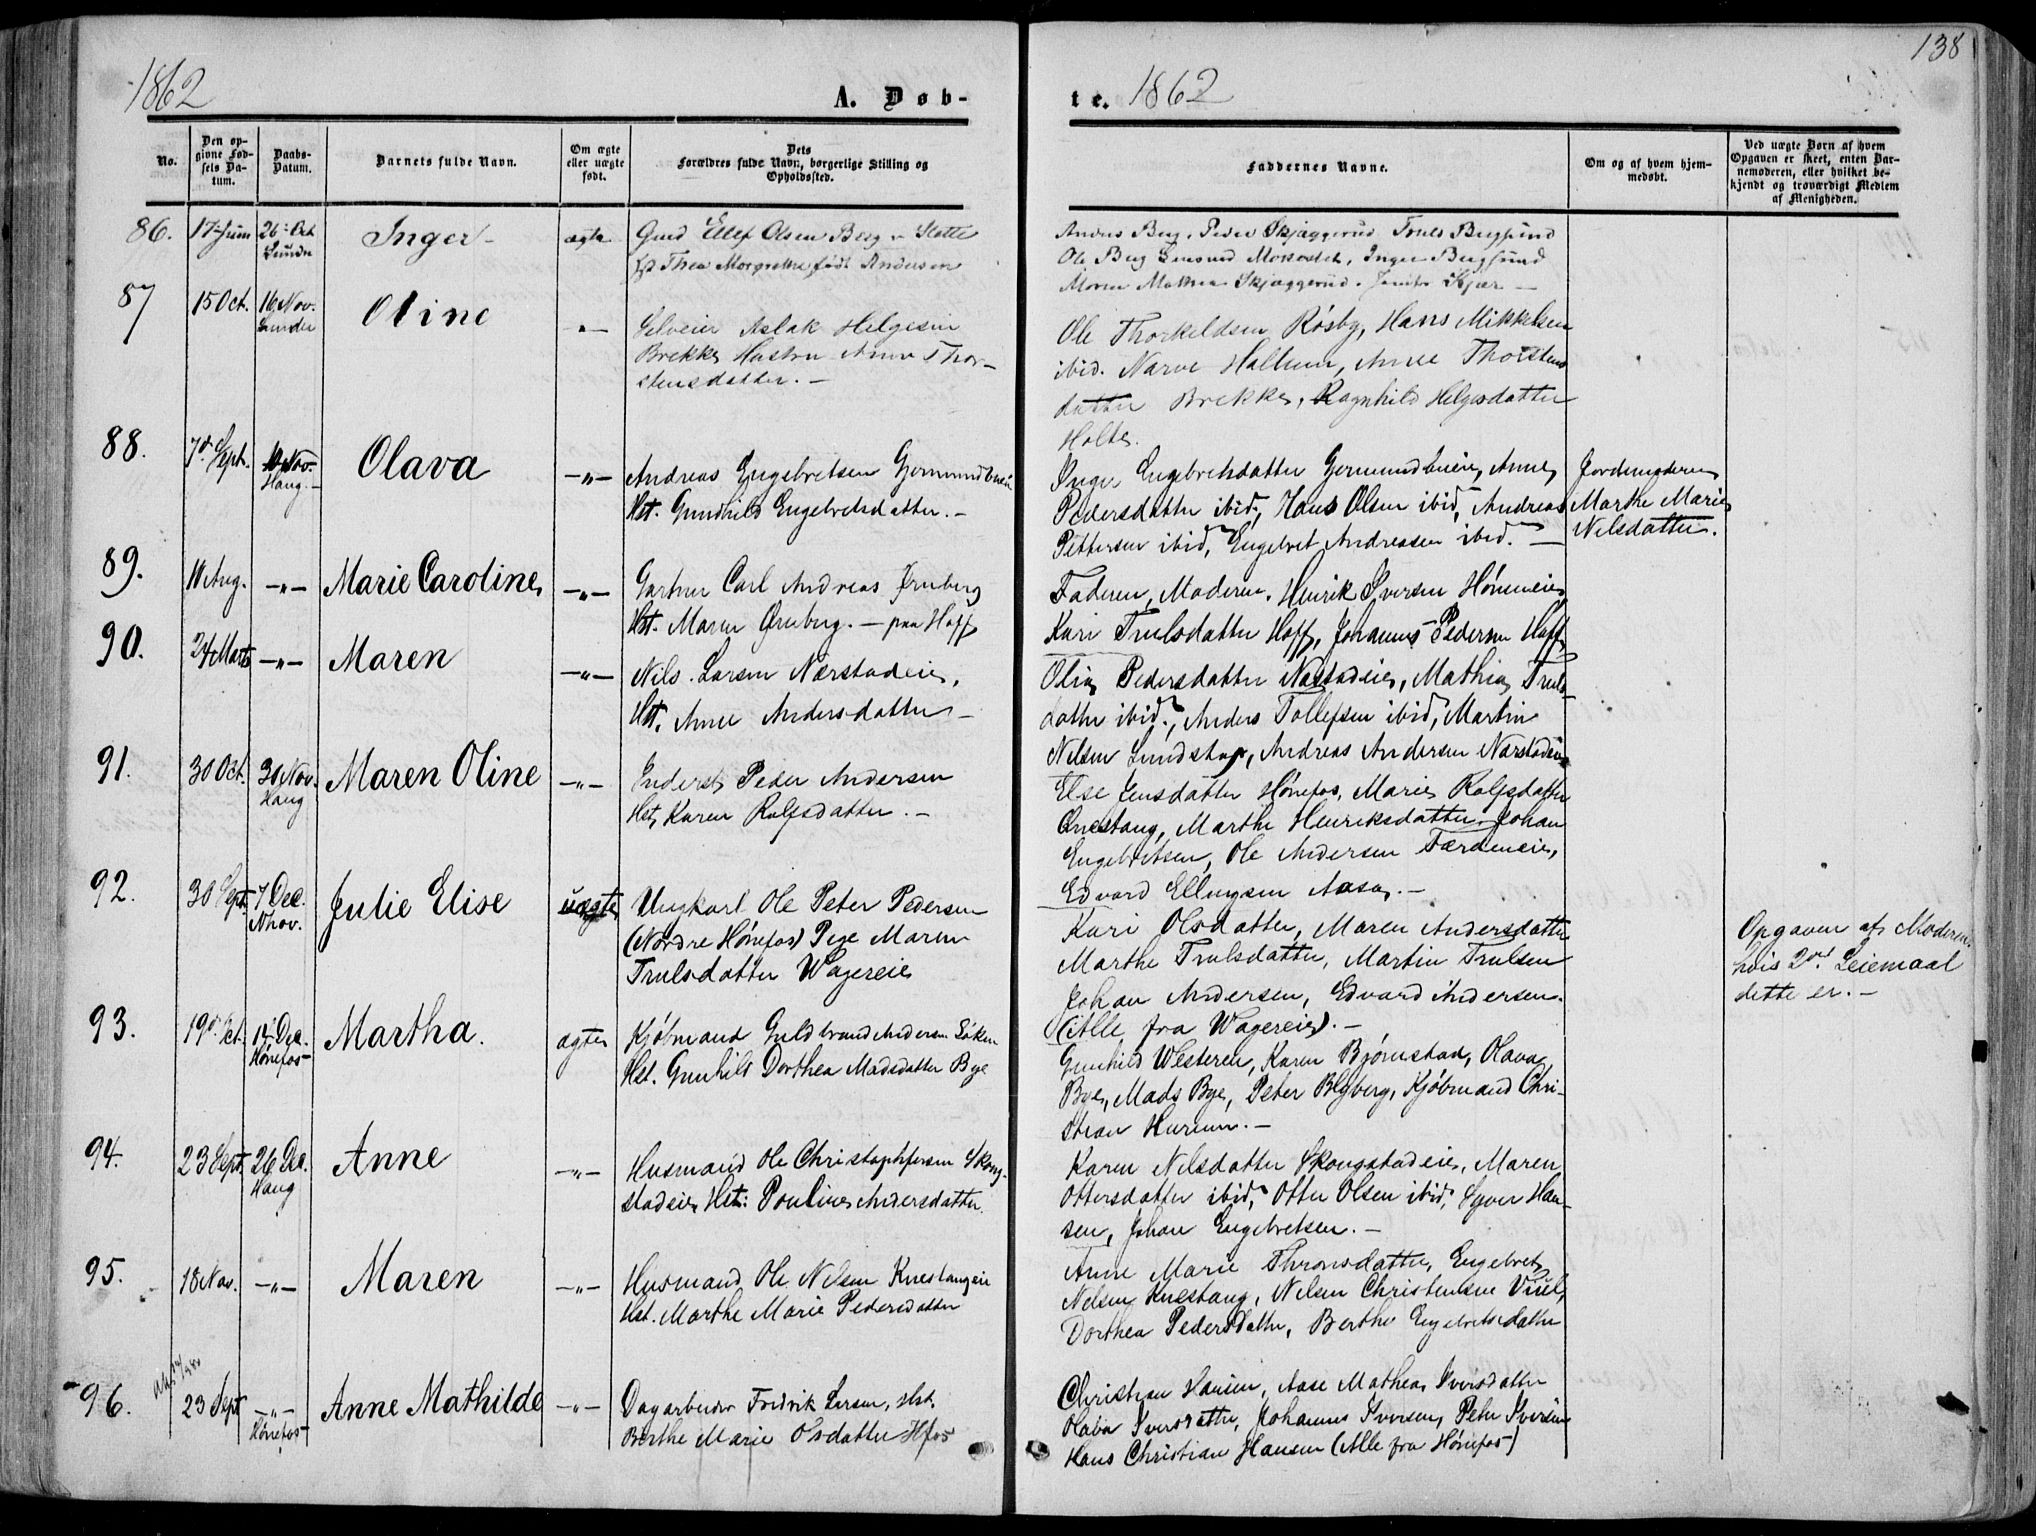 138
1862
A. Døb-
te. 1862
No.
Den op-
givne Fød-
sels Da-
tum.
Daabs-
Datum.
Barnets fulde Navn.
Om ægte
eller uægte
født.
Dets
Forældres fulde Navn, borgerlige Stilling og
Opholdssted.
Faddernes Navne.
Om og af hvem hjem-
medøbt.
Ved uægte Børn af hvem
Opgaven er skeet, enten Bar-
nemoderen, eller hvilket be-
kjendt og troværdigt Medlem
af Menigheden.
86. 17 Juni 26 Oct Inger ægte Ellef Olsen Berg
Lunder Thea Margrethe født Andersen
Peder Skjæggerud Truls Bergsund
Ole Berg Inger Bergsund
Maren Mathea Skjæggerud
87 15 Oct. 16 Nov. Oline -"- Selveier Aslak Helgesen
Lunder Brekke Hustru Anne Thor-
stensdatter. -
Ole Thorkeldsen Røsby, Hans Mikkelsen
ibid. Narve Hallum, Anne Thorstens
datter Brekke, Ragnhild Helgesdatter
Holte.
88. 7d. Sept. Nov. Olava -"- Andreas Engebretsen Gjermundboeie
Haug. Hst. Gunhild Engebretsdatter. -
Inger Engebretsdatter Gjermundboeie, Anne
Pedersdatter ibid, Hans Olsen ibid, Andreas
Pettersen ibid, Engebret Andreasen ibid. -
Jordemoderen
Marthe Marie
Nilsdatter.
89. Aug. -"- Marie Caroline -"- Gartner Carl Andreas Ørnberg
Hst. Maren Ørnberg. - paa Hoff
Faderen, Moderen, Henrik Iversen Hønneneie
Kari Trulsdatter Hoff, Johannes Pedersen Hoff
90. 24 Marts -"- Maren -"- Nils Larsen Nærstadeie,
Hst. Anne Andersdatter -
Olia Pedersdatter Næstadeie, Mathia Truls-
datter ibid., Anders Tollefsen ibid, Martin
Nelsen Lundstap, Andreas Andersen Nærstadeie
91. 30 Oct. 30 Nov. Maren Oline -"- Inderst Peder Andersen
Haug Hst. Karen Rolfsdatter. -
Else Jensdatter Hønefos, Marie Rolfsdatter
Knestang, Marthe Henriksdatter, Johan
Engebretsen, Ole Andersen Færdeneie,
Edvard Ellingsen Aasa. -
92. 30 Sept. 7 Dec. Julie Elise uægte Ungkarl Ole Peter Pedersen
Nhov. (Nordre Hønefos) Pige Maren
Trulsdatter Wagereie
Kari Olsdatter, Maren Andersdatter
Marthe Trulsdatter, Martin Trulsen
Johan Andersen, Edvard Andersen.
(Alle fra Wagereie). -
Opgaven af Moderen,
hvis 2det Leiemaal
dette er. -
93. 19d. Oct. 14 Dec. Martha. ægte Kjøbmand Guldbrand Andersen Løken
Hønefos Hst. Gunhild Dorthea Madsdatter Bye
Gunhild Westeren, Karen Bjørnstad, Olava
Bye, Mads Bye, Peter Blyberg, Kjøbmand Chri-
stian Hurum. -
94. 23 Sept. 26 Dec. Anne -"- Husmand Ole Christophersen Skoug-
Haug stadeie, Hst: Pouline Andersdatter.
Karen Nilsdatter Skougstadeie, Maren
Ottersdatter ibid, Otter Olsen ibid, Syver Han-
sen, Johan Engebretsen. -
95. 18 Nov. -"- Maren -"- Husmand Ole Nelsen Knestangeie
Hst. Marthe Marie Pedersdatter
Anne Marie Thronsdatter, Engebret
Nelsen Knestang, Nelsen Christensen Viul,
Dorthea Pedersdatter, Berthe Engebretsdatter
96. 23 Sept -"- Anne Mathilde -"- Dagarbeider Fredrik Larsen, Hst.
Hønefos Berthe Marie Olsdatter Hfos
Christian Hansen, Aase Mathea Iversdatter
Olava Iversdatter, Johannes Iversen, Peter Iversen
Hans Christian Hansen (Alle fra Hønefos)